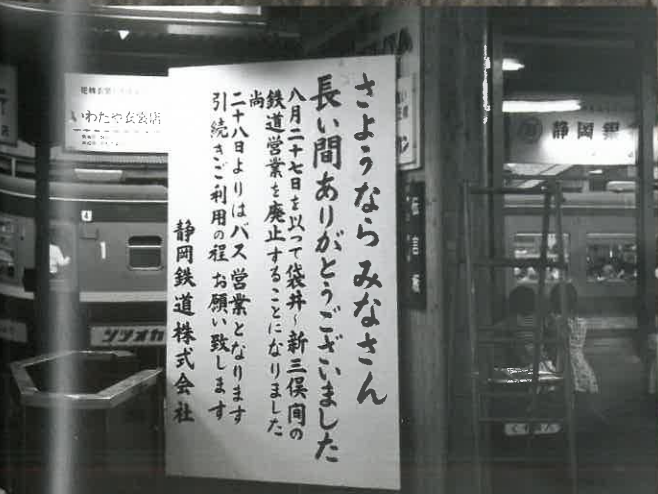 さようなら みなさん
長い間ありがとうございました
八月二十七日を以って袋井〜新三俣間の
鉄道営業を廃止することになりました
尚
二十八日よりはバス営業となります
引続きご利用の程 お願い致します
静岡鉄道株式会社
いわたや衣裳店
静岡銀
伝言板
1
4
くずかご